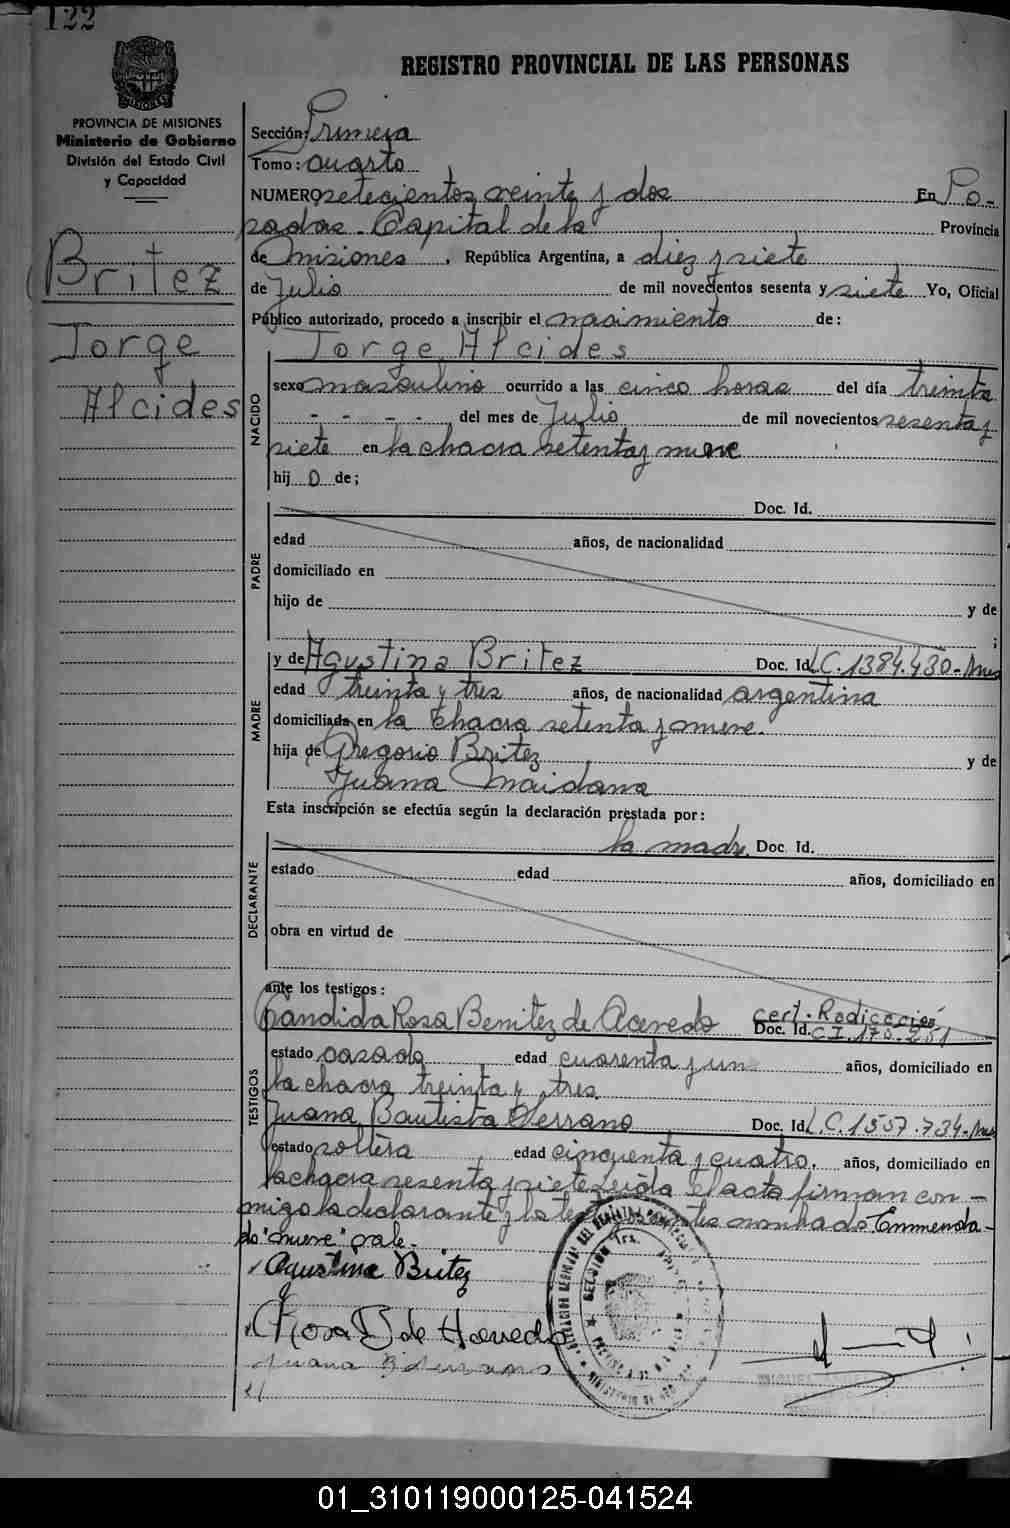 122
REGISTRO PROVINCIAL DE LAS PERSONAS
MISIONES
PROVINCIA DE MISIONES
Ministerio de Gobierno
División del Estado Civil
y Capacidad
Britez
Jorge
Alcides
Sección: Primera
Tomo: cuarto
NUMERO setecientos veinte y dos En Po-
sadas. Capital de la Provincia
de Misiones, República Argentina, a diez y siete
de Julio de mil novecientos sesenta y siete Yo, Oficial
Público autorizado, procedo a inscribir el nacimiento de:
NACIDO
Jorge Alcides
sexo masculino ocurrido a las cinco horas del día treinta
- - - - del mes de Julio de mil novecientos sesenta y
siete en la chacra setenta y nueve
hij o de;
PADRE
Doc. Id.
edad años, de nacionalidad
domiciliado en
hijo de y de
;
MADRE
y de Agustina Britez Doc. Id. L.C. 1384.430-Mnes
edad treinta y tres años, de nacionalidad argentina
domiciliada en la chacra setenta y nueve.
hija de Gregorio Britez y de
Juana Maidana
Esta inscripción se efectúa según la declaración prestada por:
DECLARANTE
la madre Doc. Id.
estado edad años, domiciliado en
obra en virtud de
ante los testigos:
TESTIGOS
Candida Rosa Benitez de Acevedo cert. Radicación
Doc. Id. C.I. 170.251
estado casada edad cuarenta y un años, domiciliado en
la chacra treinta y tres
Juana Bautista Serrano Doc. Id. L.C. 1557.734-Mnes
estado soltera edad cincuenta y cuatro. años, domiciliado en
la chacra sesenta y siete Leida el acta firman con-
migo la declarante y la nombrada. Enmenda-
do "nueve" vale.
Agustina Britez
Rosa B de Acevedo
Juana B Serrano
01_310119000125-041524